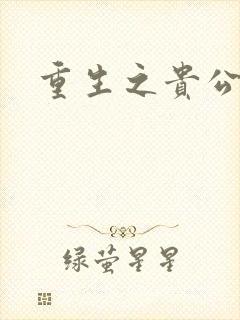 重生之貴公
绿萤星星